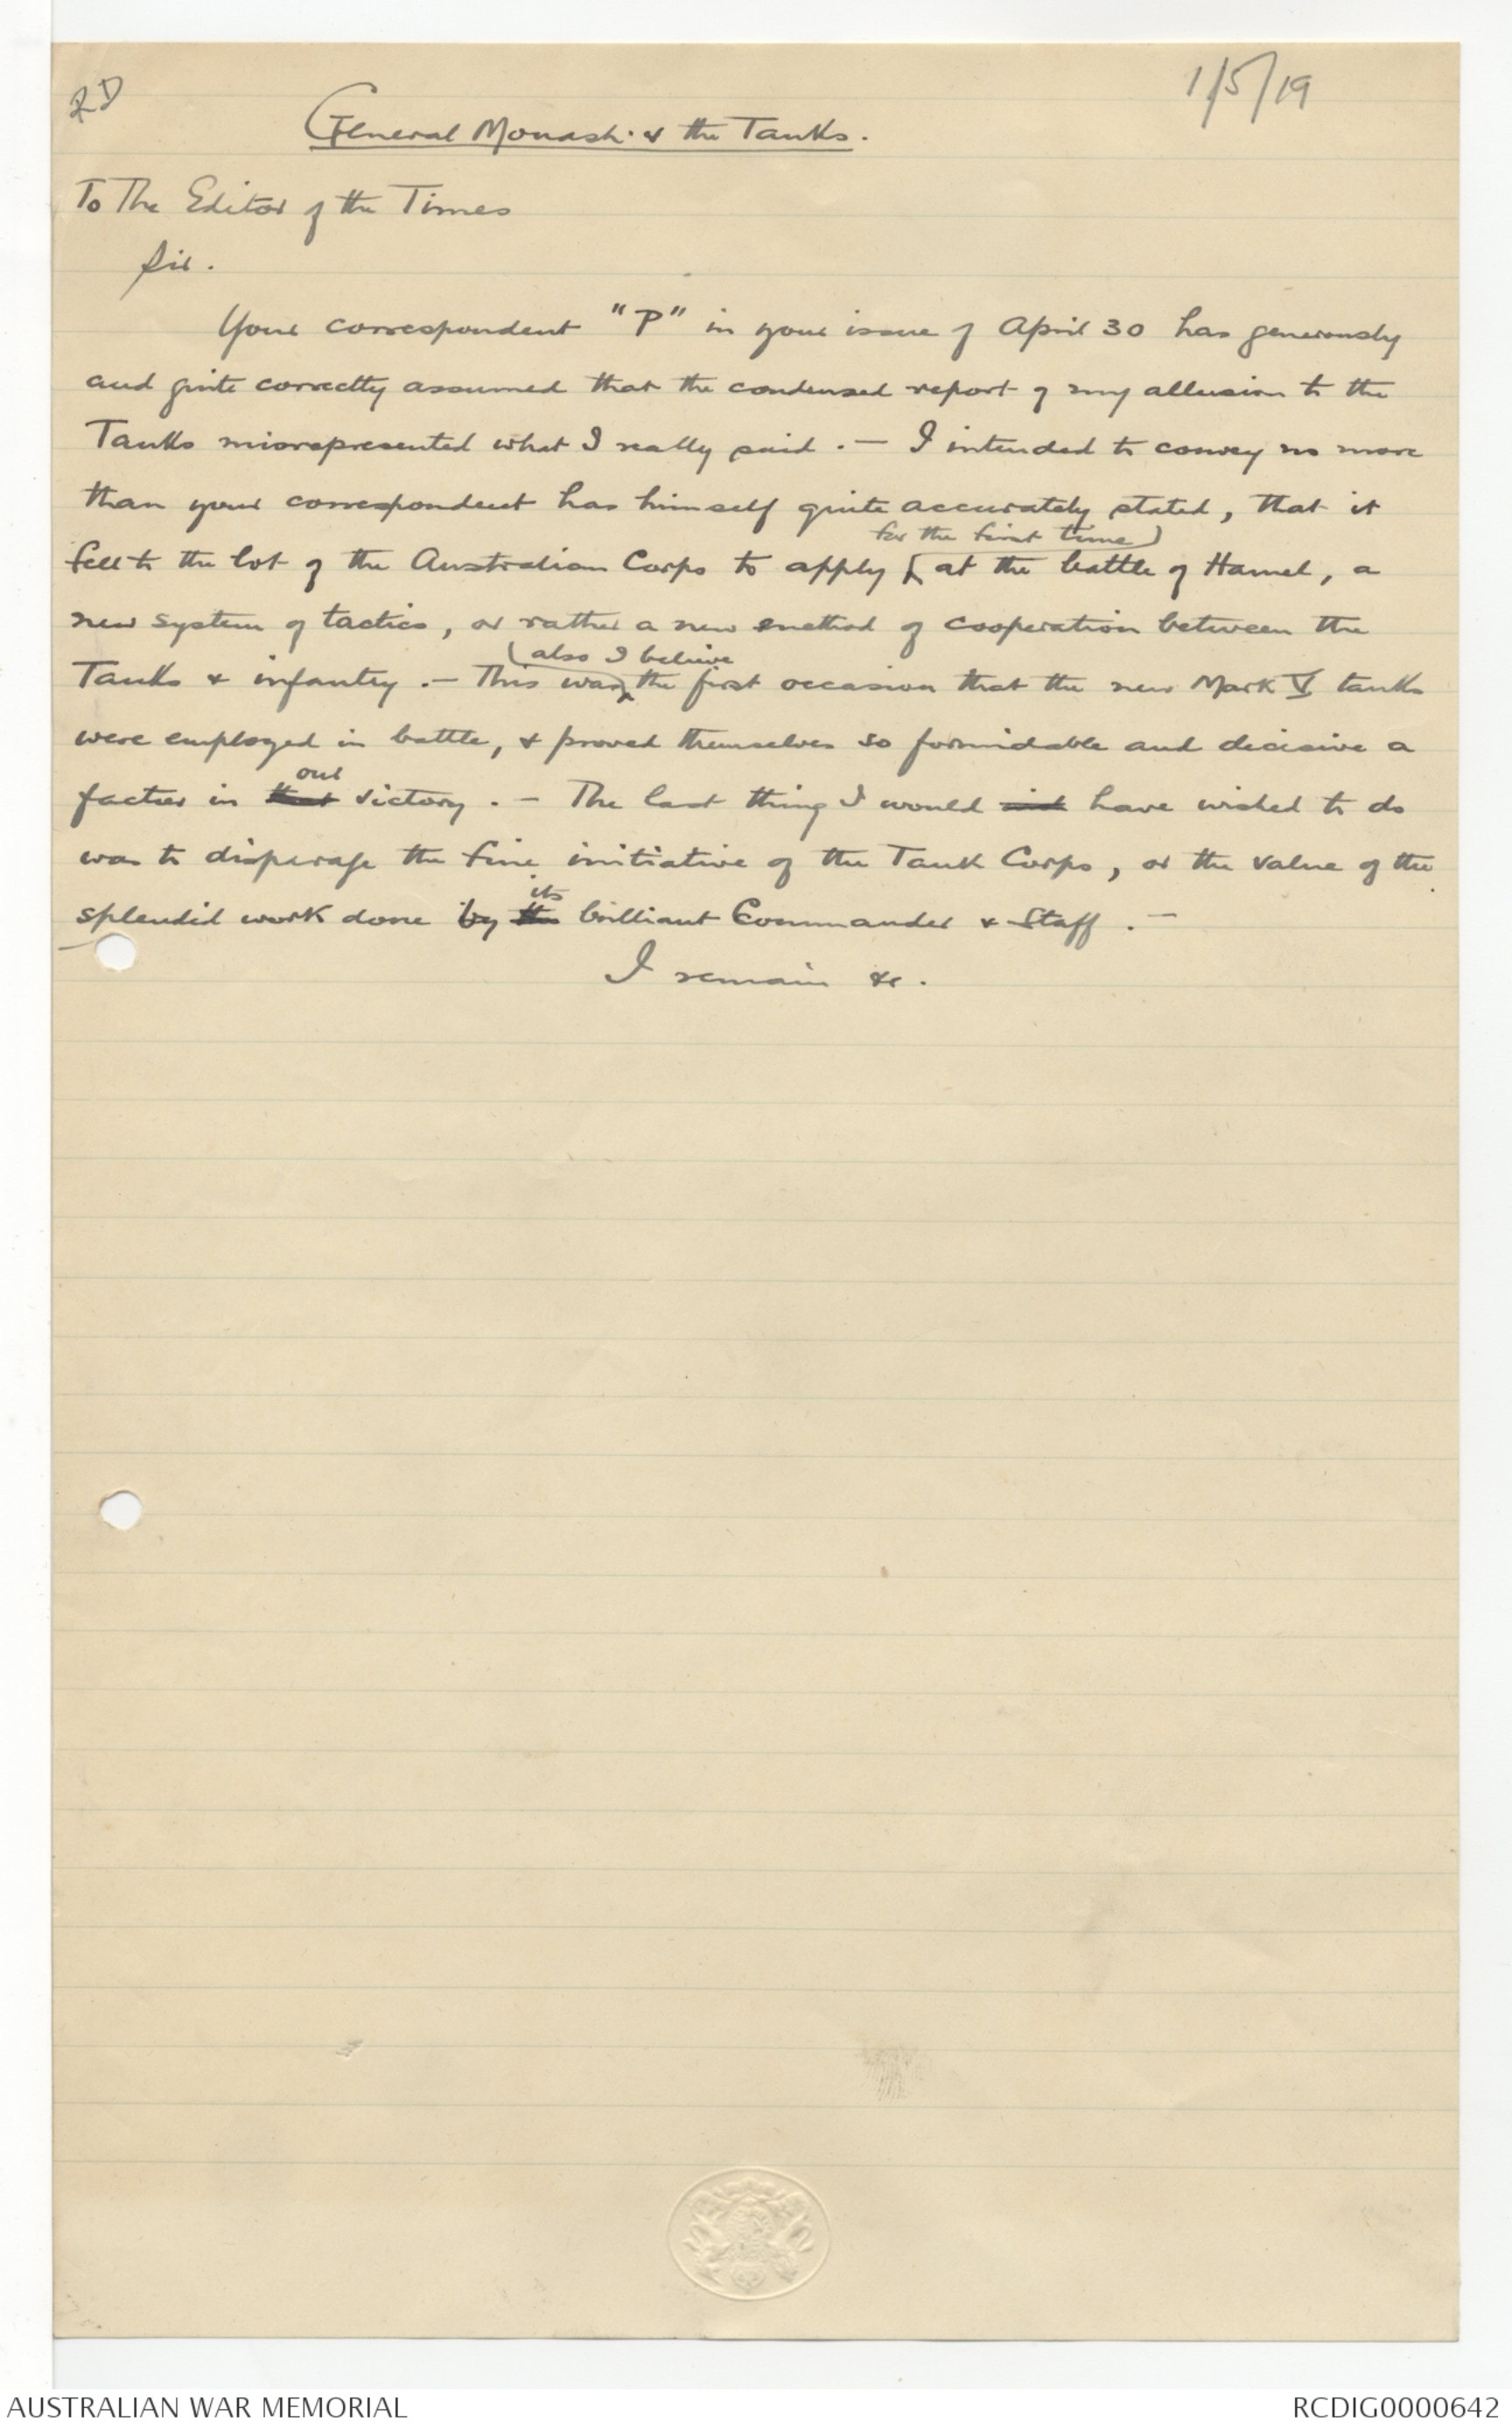 RD
1/5/19
General Monash & the Tanks.
To The Editor of the Times
Sir.
Your correspondent "P" in your issue of April 30 has generously
and quite correctly assumed that the condensed report of my allusion to the
Tanks misrepresented what I really said. — I intended to convey no more
than your correspondent has himself quite accurately stated, that it
for the first time
fell to the lot of the Australian Corps to apply at the battle of Hamel, a
new system of tactics, or rather a new method of cooperation between the
also I believe
Tanks & infantry. — This was the first occasion that the new Mark V tanks
were employed in battle, & proved themselves so formidable and decisive a
our
factor in that victory. — The last thing I would have wished to do
was to disparage the fine initiative of the Tank Corps, or the value of the
its
splendid work done by the brilliant Commander & Staff. —
I remain &c.
AUSTRALIAN WAR MEMORIAL
RCDIG0000642